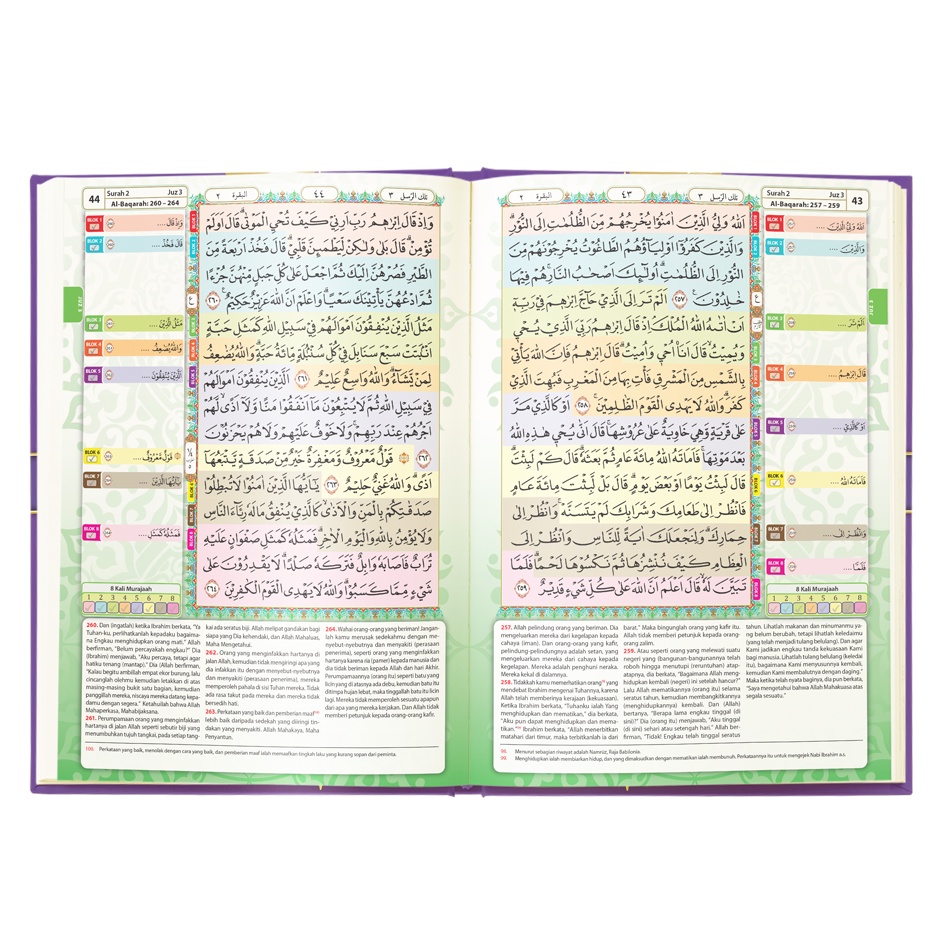 تلك الرسل ٣
٤٣
البقرة ٢
Surah 2 Juz 3
Al-Baqarah: 257 – 259
43
اَللّٰهُ وَلِيُّ الَّذِيْنَ اٰمَنُوْا يُخْرِجُهُمْ مِّنَ الظُّلُمٰتِ اِلَى النُّوْرِۗ
وَالَّذِيْنَ كَفَرُوْٓا اَوْلِيَاۤؤُهُمُ الطَّاغُوْتُ يُخْرِجُوْنَهُمْ مِّنَ
النُّوْرِ اِلَى الظُّلُمٰتِۗ اُولٰۤىِٕكَ اَصْحٰبُ النَّارِۚ هُمْ فِيْهَا
خٰلِدُوْنَ ۝٢٥٧ اَلَمْ تَرَ اِلَى الَّذِيْ حَاۤجَّ اِبْرٰهٖمَ فِيْ رَبِّهٖٓ
اَنْ اٰتٰىهُ اللّٰهُ الْمُلْكَۘ اِذْ قَالَ اِبْرٰهٖمُ رَبِّيَ الَّذِيْ يُحْيٖ
وَيُمِيْتُۙ قَالَ اَنَا۠ اُحْيٖ وَاُمِيْتُۗ قَالَ اِبْرٰهٖمُ فَاِنَّ اللّٰهَ يَأْتِيْ
بِالشَّمْسِ مِنَ الْمَشْرِقِ فَأْتِ بِهَا مِنَ الْمَغْرِبِ فَبُهِتَ الَّذِيْ
كَفَرَۗ وَاللّٰهُ لَا يَهْدِى الْقَوْمَ الظّٰلِمِيْنَۚ ۝٢٥٨ اَوْ كَالَّذِيْ مَرَّ
عَلٰى قَرْيَةٍ وَّهِيَ خَاوِيَةٌ عَلٰى عُرُوْشِهَاۚ قَالَ اَنّٰى يُحْيٖ هٰذِهِ اللّٰهُ
بَعْدَ مَوْتِهَاۚ فَاَمَاتَهُ اللّٰهُ مِائَةَ عَامٍ ثُمَّ بَعَثَهٗۗ قَالَ كَمْ لَبِثْتَۗ
قَالَ لَبِثْتُ يَوْمًا اَوْ بَعْضَ يَوْمٍۗ قَالَ بَلْ لَّبِثْتَ مِائَةَ عَامٍ
فَانْظُرْ اِلٰى طَعَامِكَ وَشَرَابِكَ لَمْ يَتَسَنَّهْۚ وَانْظُرْ اِلٰى
حِمَارِكَۗ وَلِنَجْعَلَكَ اٰيَةً لِّلنَّاسِ وَانْظُرْ اِلَى
الْعِظَامِ كَيْفَ نُنْشِزُهَا ثُمَّ نَكْسُوْهَا لَحْمًاۗ فَلَمَّا
تَبَيَّنَ لَهٗۙ قَالَ اَعْلَمُ اَنَّ اللّٰهَ عَلٰى كُلِّ شَيْءٍ قَدِيْرٌ ۝٢٥٩
BLOK 1 اَللّٰهُ وَلِيُّ الَّذِيْنَ ....
BLOK 2 وَالَّذِيْنَ ....
BLOK 3 اَلَمْ تَرَ ....
BLOK 4 قَالَ اِبْرٰهٖمُ ....
BLOK 5 اَوْ كَالَّذِيْ ....
BLOK 6 فَاَمَاتَهُ اللّٰهُ ....
BLOK 7 وَانْظُرْ اِلٰى ....
BLOK 8 فَلَمَّا ....
JUZ 3
8 Kali Murajaah
1 2 3 4 5 6 7 8
257. Allah pelindung orang yang beriman. Dia
mengeluarkan mereka dari kegelapan kepada
cahaya (iman). Dan orang-orang yang kafir,
pelindung-pelindungnya adalah setan, yang
mengeluarkan mereka dari cahaya kepada
kegelapan. Mereka adalah penghuni neraka.
Mereka kekal di dalamnya.
258. Tidakkah kamu memerhatikan orang yang
mendebat Ibrahim mengenai Tuhannya, karena
Allah telah memberinya kerajaan (kekuasaan).
Ketika Ibrahim berkata, "Tuhanku ialah Yang
menghidupkan dan mematikan," dia berkata,
"Aku pun dapat menghidupkan dan mema-
tikan." Ibrahim berkata, "Allah menerbitkan
matahari dari timur, maka terbitkanlah ia dari
barat." Maka bingunglah orang yang kafir itu.
Allah tidak memberi petunjuk kepada orang-
orang zalim.
259. Atau seperti orang yang melewati suatu
negeri yang (bangunan-bangunannya) telah
roboh hingga menutupi (reruntuhan) atap-
atapnya, dia berkata, "Bagaimana Allah meng-
hidupkan kembali (negeri) ini setelah hancur?"
Lalu Allah mematikannya (orang itu) selama
seratus tahun, kemudian membangkitkannya
(menghidupkannya) kembali. Dan (Allah)
bertanya, "Berapa lama engkau tinggal (di
sini)?" Dia (orang itu) menjawab, "Aku tinggal
(di sini) sehari atau setengah hari." Allah ber-
firman, "Tidak! Engkau telah tinggal seratus
tahun. Lihatlah makanan dan minumanmu ya-
ng belum berubah, tetapi lihatlah keledaimu
(yang telah menjadi tulang belulang). Dan agar
Kami jadikan engkau tanda kekuasaan Kami
bagi manusia. Lihatlah tulang belulang (keledai
itu), bagaimana Kami menyusunnya kembali,
kemudian Kami membalutnya dengan daging."
Maka ketika telah nyata baginya, dia pun berkata,
"Saya mengetahui bahwa Allah Mahakuasa atas
segala sesuatu."
98. Menurut sebagian riwayat adalah Namruz, Raja Babilonia.
99. Menghidupkan ialah membiarkan hidup, dan yang dimaksudkan dengan mematikan ialah membunuh. Perkataannya itu untuk mengejek Nabi Ibrahim a.s.
تلك الرسل ٣
٤٤
البقرة ٢
44
Surah 2 Juz 3
Al-Baqarah: 260 – 264
وَاِذْ قَالَ اِبْرٰهٖمُ رَبِّ اَرِنِيْ كَيْفَ تُحْيِ الْمَوْتٰىۗ قَالَ اَوَلَمْ
تُؤْمِنْۗ قَالَ بَلٰى وَلٰكِنْ لِّيَطْمَىِٕنَّ قَلْبِيْۗ قَالَ فَخُذْ اَرْبَعَةً مِّنَ
الطَّيْرِ فَصُرْهُنَّ اِلَيْكَ ثُمَّ اجْعَلْ عَلٰى كُلِّ جَبَلٍ مِّنْهُنَّ جُزْءًا
ثُمَّ ادْعُهُنَّ يَأْتِيْنَكَ سَعْيًاۗ وَاعْلَمْ اَنَّ اللّٰهَ عَزِيْزٌ حَكِيْمٌ ۝٢٦٠
مَثَلُ الَّذِيْنَ يُنْفِقُوْنَ اَمْوَالَهُمْ فِيْ سَبِيْلِ اللّٰهِ كَمَثَلِ حَبَّةٍ
اَنْۢبَتَتْ سَبْعَ سَنَابِلَ فِيْ كُلِّ سُنْۢبُلَةٍ مِّائَةُ حَبَّةٍۗ وَاللّٰهُ يُضٰعِفُ
لِمَنْ يَّشَاۤءُۗ وَاللّٰهُ وَاسِعٌ عَلِيْمٌ ۝٢٦١ اَلَّذِيْنَ يُنْفِقُوْنَ اَمْوَالَهُمْ
فِيْ سَبِيْلِ اللّٰهِ ثُمَّ لَا يُتْبِعُوْنَ مَآ اَنْفَقُوْا مَنًّا وَّلَآ اَذًىۙ لَّهُمْ
اَجْرُهُمْ عِنْدَ رَبِّهِمْۚ وَلَا خَوْفٌ عَلَيْهِمْ وَلَا هُمْ يَحْزَنُوْنَ
۝٢٦٢ قَوْلٌ مَّعْرُوْفٌ وَّمَغْفِرَةٌ خَيْرٌ مِّنْ صَدَقَةٍ يَّتْبَعُهَآ
اَذًىۗ وَاللّٰهُ غَنِيٌّ حَلِيْمٌ ۝٢٦٣ يٰٓاَيُّهَا الَّذِيْنَ اٰمَنُوْا لَا تُبْطِلُوْا
صَدَقٰتِكُمْ بِالْمَنِّ وَالْاَذٰىۙ كَالَّذِيْ يُنْفِقُ مَالَهٗ رِئَاۤءَ النَّاسِ
وَلَا يُؤْمِنُ بِاللّٰهِ وَالْيَوْمِ الْاٰخِرِۗ فَمَثَلُهٗ كَمَثَلِ صَفْوَانٍ عَلَيْهِ
تُرَابٌ فَاَصَابَهٗ وَابِلٌ فَتَرَكَهٗ صَلْدًاۗ لَا يَقْدِرُوْنَ عَلٰى
شَيْءٍ مِّمَّا كَسَبُوْاۗ وَاللّٰهُ لَا يَهْدِى الْقَوْمَ الْكٰفِرِيْنَ ۝٢٦٤
BLOK 1 وَاِذْ قَالَ ....
BLOK 2 قَالَ فَخُذْ ....
BLOK 3 مَثَلُ الَّذِيْنَ ....
BLOK 4 وَاللّٰهُ يُضٰعِفُ ....
BLOK 5 اَلَّذِيْنَ يُنْفِقُوْنَ ....
BLOK 6 قَوْلٌ مَّعْرُوْفٌ ....
BLOK 7 يٰٓاَيُّهَا الَّذِيْنَ ....
BLOK 8 فَمَثَلُهٗ كَمَثَلِ ....
JUZ 3
8 Kali Murajaah
1 2 3 4 5 6 7 8
260. Dan (ingatlah) ketika Ibrahim berkata, "Ya
Tuhan-ku, perlihatkanlah kepadaku bagaima-
na Engkau menghidupkan orang mati." Allah
berfirman, "Belum percayakah engkau?" Dia
(Ibrahim) menjawab, "Aku percaya, tetapi agar
hatiku tenang (mantap)." Dia (Allah) berfirman,
"Kalau begitu ambillah empat ekor burung, lalu
cincanglah olehmu kemudian letakkan di atas
masing-masing bukit satu bagian, kemudian
panggillah mereka, niscaya mereka datang kepa-
damu dengan segera." Ketahuilah bahwa Allah
Mahaperkasa, Mahabijaksana.
261. Perumpamaan orang yang menginfakkan
hartanya di jalan Allah seperti sebutir biji yang
menumbuhkan tujuh tangkai, pada setiap tang-
kai ada seratus biji. Allah melipat gandakan bagi
siapa yang Dia kehendaki, dan Allah Mahaluas,
Maha Mengetahui.
262. Orang yang menginfakkan hartanya di
jalan Allah, kemudian tidak mengiringi apa yang
dia infakkan itu dengan menyebut-nyebutnya
dan menyakiti (perasaan penerima), mereka
memperoleh pahala di sisi Tuhan mereka. Tidak
ada rasa takut pada mereka dan mereka tidak
bersedih hati.
263. Perkataan yang baik dan pemberian maaf
lebih baik daripada sedekah yang diiringi tin-
dakan yang menyakiti. Allah Mahakaya, Maha
Penyantun.
264. Wahai orang-orang yang beriman! Jangan-
lah kamu merusak sedekahmu dengan me-
nyebut-nyebutnya dan menyakiti (perasaan
penerima), seperti orang yang menginfakkan
hartanya karena ria (pamer) kepada manusia dan
dia tidak beriman kepada Allah dan hari Akhir.
Perumpamaannya (orang itu) seperti batu yang
licin yang di atasnya ada debu, kemudian batu itu
ditimpa hujan lebat, maka tinggallah batu itu licin
lagi. Mereka tidak memperoleh sesuatu apapun
dari apa yang mereka kerjakan. Dan Allah tidak
memberi petunjuk kepada orang-orang kafir.
100. Perkataan yang baik, menolak dengan cara yang baik, dan pemberian maaf ialah memaafkan tingkah laku yang kurang sopan dari peminta.